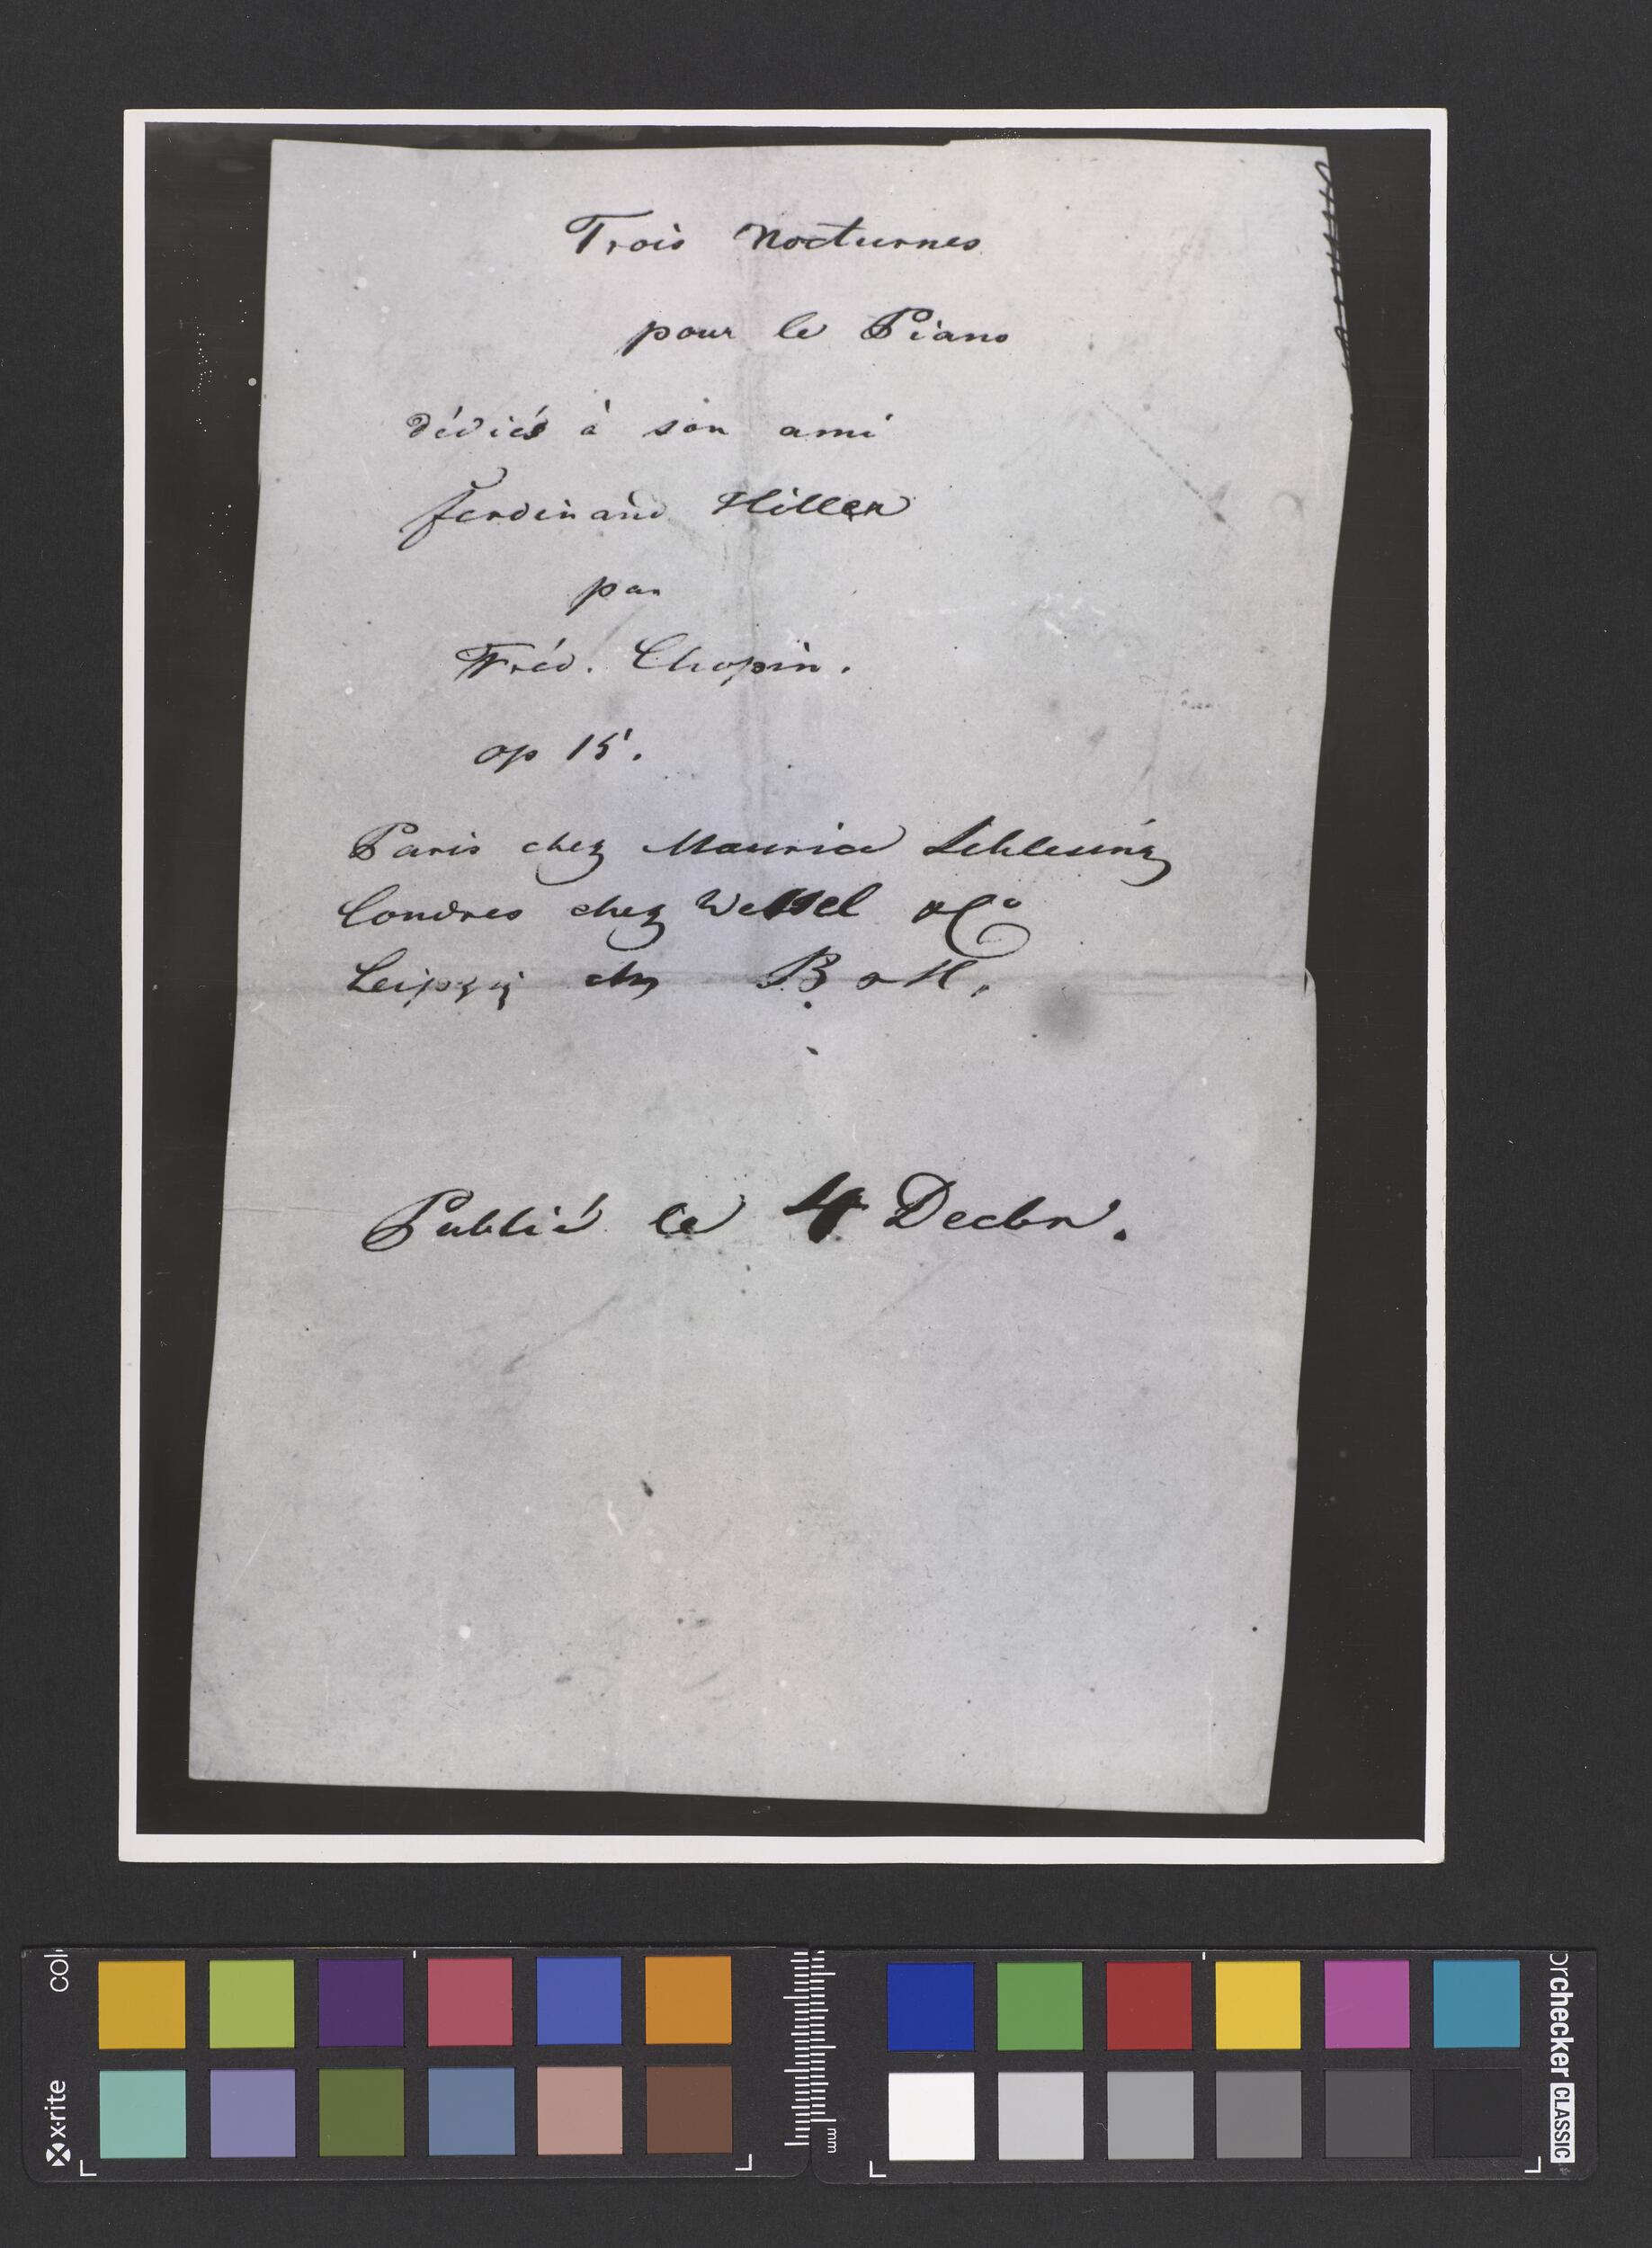 Trois Nocturnes
pour le Piano
dédiés à son ami
Ferdinand Hiller
par
Fréd. Chopin.
op 15.
Paris chez Maurice Schlesing
Londres chez Wessel & Co
Leipzig chz B & H.
Publié le 4 Decbr.
x-rite
colorchecker CLASSIC
mm